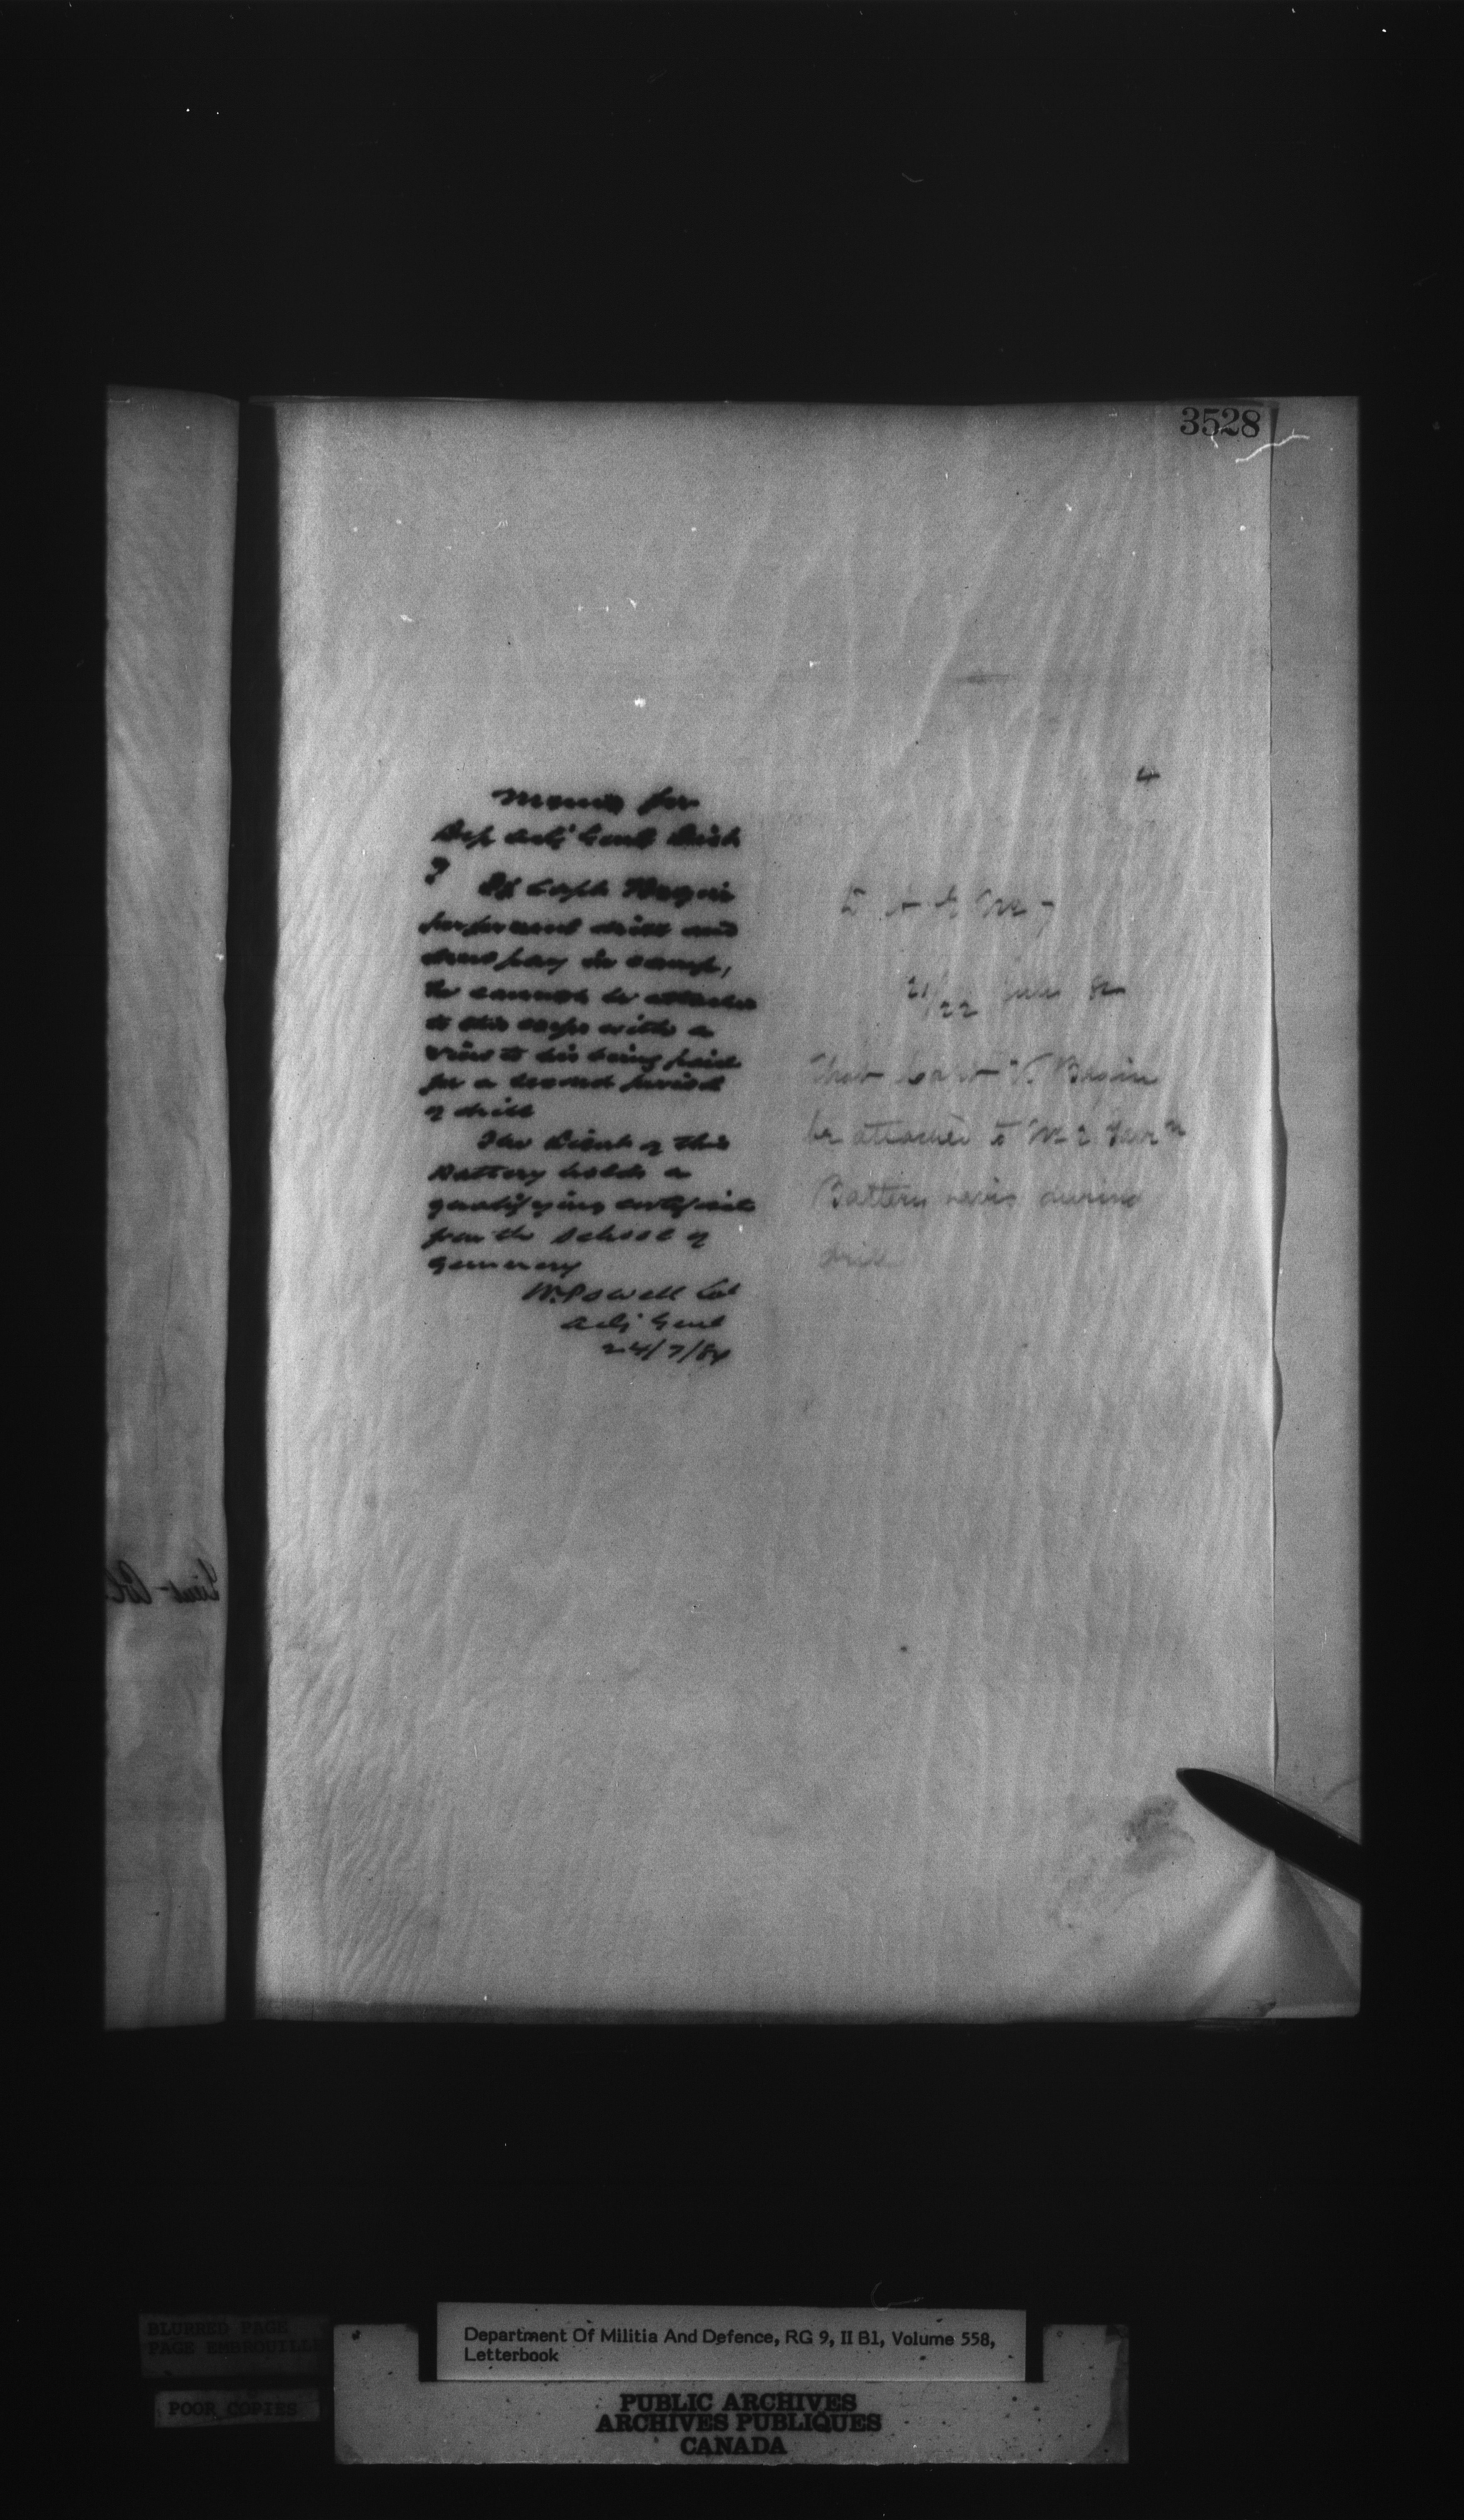 3528
Memo for
Dep Adj Genl
7 If Capt Begin
performed drill and
drew pay in camp,
he cannot be attached
to this corps with a
view to his being paid
for a second period
of drill
The Lieut of this
Battery holds a
qualifying certificate
from the School of
Gunnery
W. Powell Col
Adj Genl
24/7/84
4
21/22 July 84
That Capt V. Begin
be attached to No 2 Garn
Battery Levis during
drill
Lieut-Col
BLURRED PAGE
PAGE EMBROUILLE
POOR COPIES
Department Of Militia And Defence, RG 9, II B1, Volume 558,
Letterbook
PUBLIC ARCHIVES
ARCHIVES PUBLIQUES
CANADA